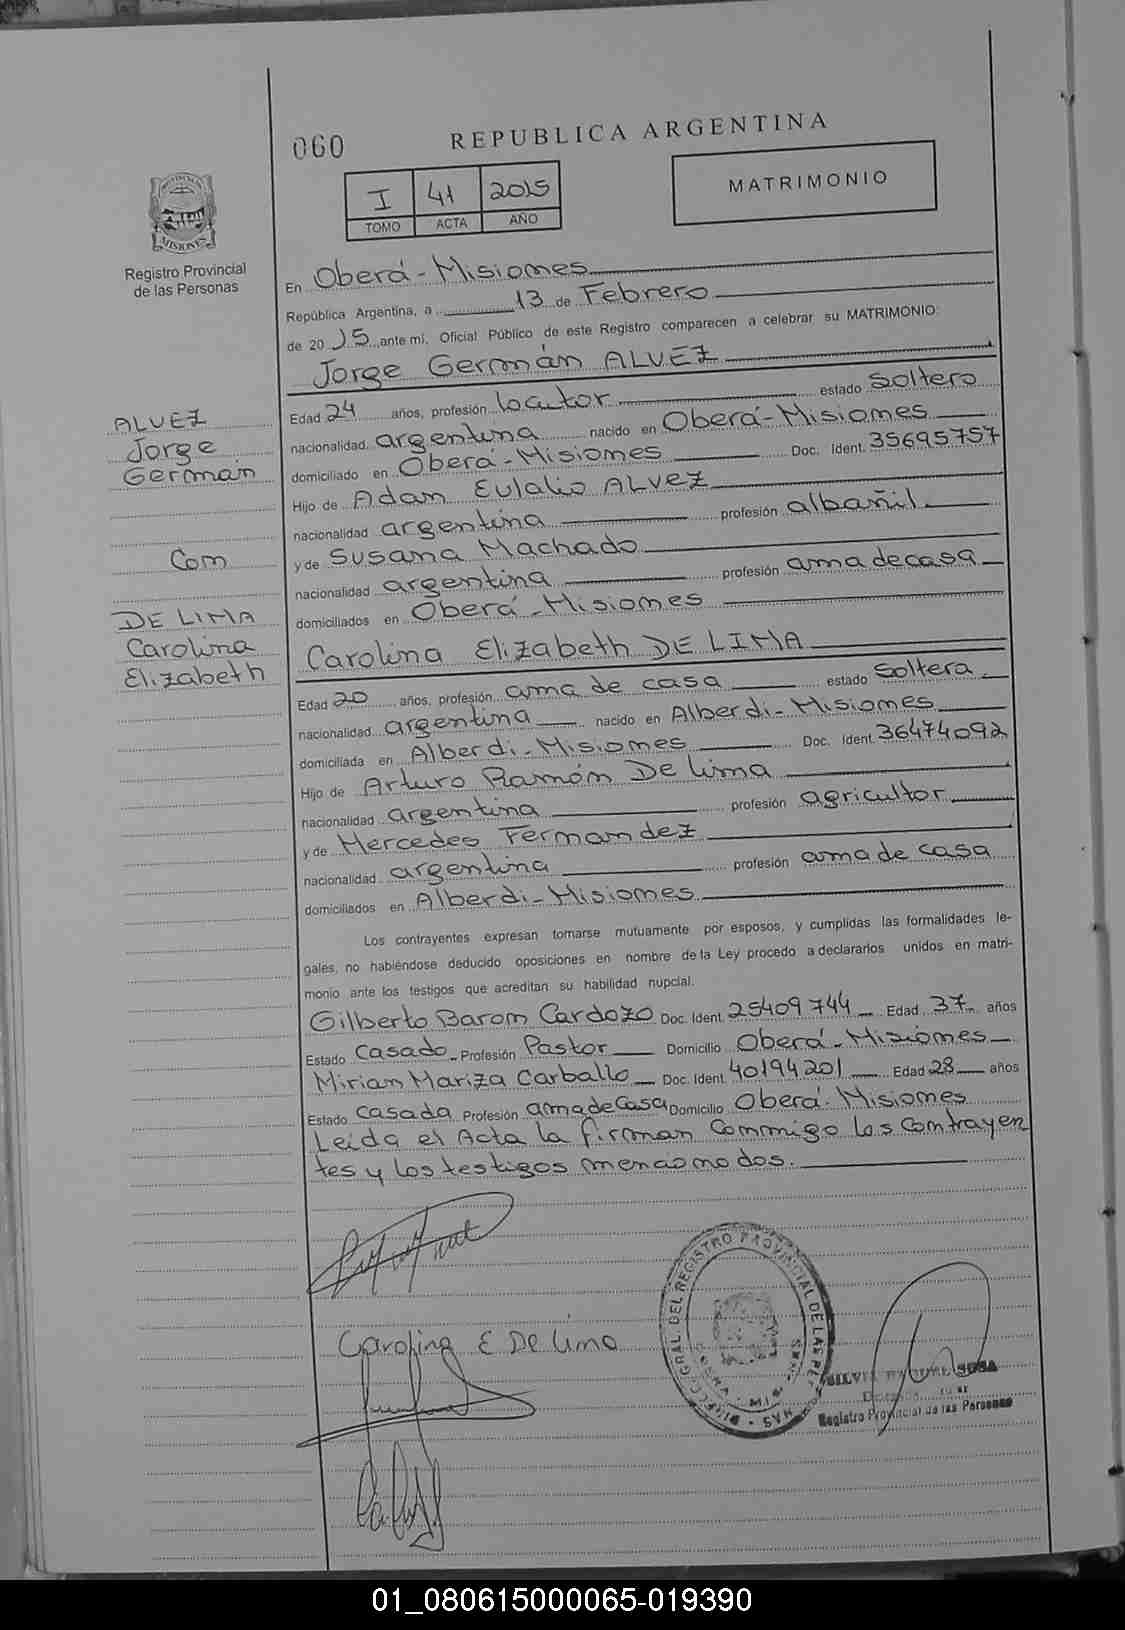 060
REPUBLICA ARGENTINA
I 41 2015
TOMO ACTA AÑO
MATRIMONIO
PROVINCIA
MISIONES
Registro Provincial
de las Personas
En Oberá-Misiones
República Argentina, a 13 de Febrero
de 20 15, ante mi, Oficial Público de este Registro comparecen a celebrar su MATRIMONIO:
Jorge Germán ALVEZ
Edad 24 años, profesión locutor estado soltero
nacionalidad argentina nacido en Oberá-Misiones
domiciliado en Oberá-Misiones Doc. Ident. 35695757
Hijo de Adam Eulalio ALVEZ
nacionalidad argentina profesión albañil
y de Susana Machado
nacionalidad argentina profesión ama de casa
domiciliados en Oberá-Misiones
ALVEZ
Jorge
Germán
Con
DE LIMA
Carolina
Elizabeth
Carolina Elizabeth DE LIMA
Edad 20 años, profesión ama de casa estado soltera
nacionalidad argentina nacido en Alberdi-Misiones
domiciliada en Alberdi-Misiones Doc. Ident. 36474092
Hijo de Arturo Ramón De Lima
nacionalidad argentina profesión agricultor
y de Mercedes Fernandez
nacionalidad argentina profesión ama de casa
domiciliados en Alberdi-Misiones
Los contrayentes expresan tomarse mutuamente por esposos, y cumplidas las formalidades le-
gales, no habiéndose deducido oposiciones en nombre de la Ley procedo a declararlos unidos en matri-
monio ante los testigos que acreditan su habilidad nupcial.
Gilberto Baron Cardozo Doc. Ident. 25409744 Edad 37 años
Estado Casado Profesión Pastor Domicilio Oberá-Misiones
Miriam Mariza Carballo Doc. Ident. 40194201 Edad 28 años
Estado casada Profesión ama de casa Domicilio Oberá-Misiones
Leída el Acta la firman conmigo los contrayen
tes y los testigos mencionados.
Carolina E De Lima
GRAL. DEL REGISTRO PROVINCIAL DE LAS
SOSA
Registro Provincial de las Personas
01_080615000065-019390